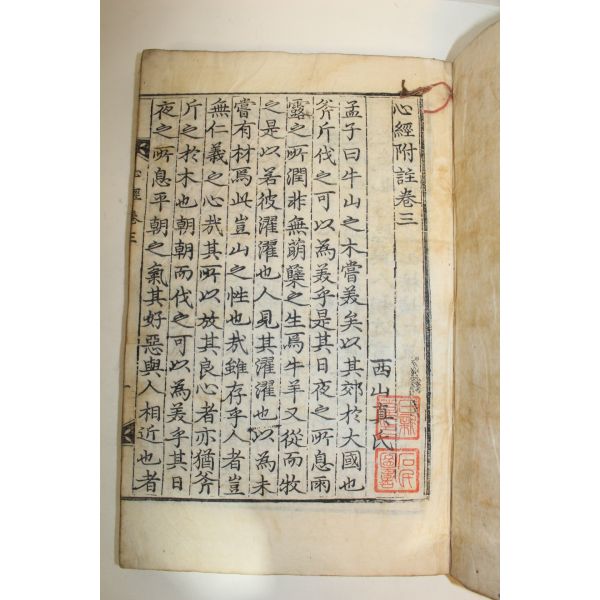 心經附註卷三
西山真氏
孟子曰牛山之木嘗美矣以其郊於大國也
斧斤伐之可以為美乎是其日夜之所息雨
露之所潤非無萌櫱之生焉牛羊又從而牧
之是以若彼濯濯也人見其濯濯也以為未
嘗有材焉此豈山之性也哉雖存乎人者豈
無仁義之心哉其所以放其良心者亦猶斧
斤之於木也朝朝而伐之可以為美乎其日
夜之所息平朝之氣其好惡與人相近也者
心經卷三